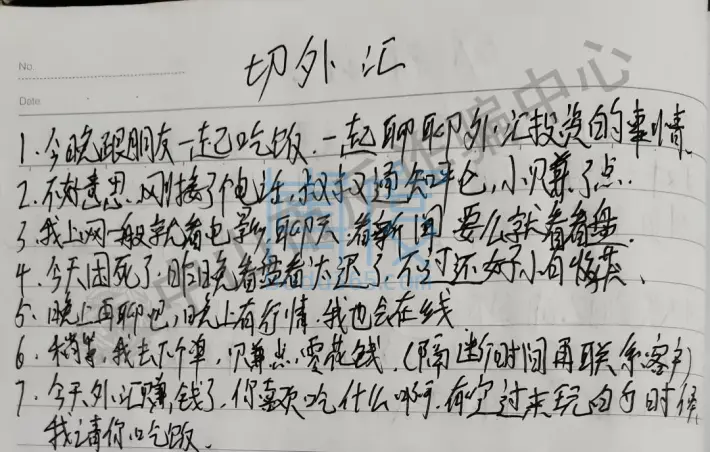 No.
Date
切外汇
1. 今晚跟朋友一起吃饭.一起聊聊外汇投资的事情.
2. 不好意思.刚接了个电话,叔叔通知平仓,小赚了点.
3. 我上网一般就看电影,聊天.看新闻 要么就看看盘.
4. 今天困死了.昨晚看盘看太迟了,不过还好小有收获.
5. 晚上再聊吧,晚上有行情.我也会在线
6. 稍等,我去下个单,赚点零花钱.(隔断时间再联系客户)
7. 今天外汇赚钱了,你喜欢吃什么啊,有空过来玩的时候
我请你吃饭.